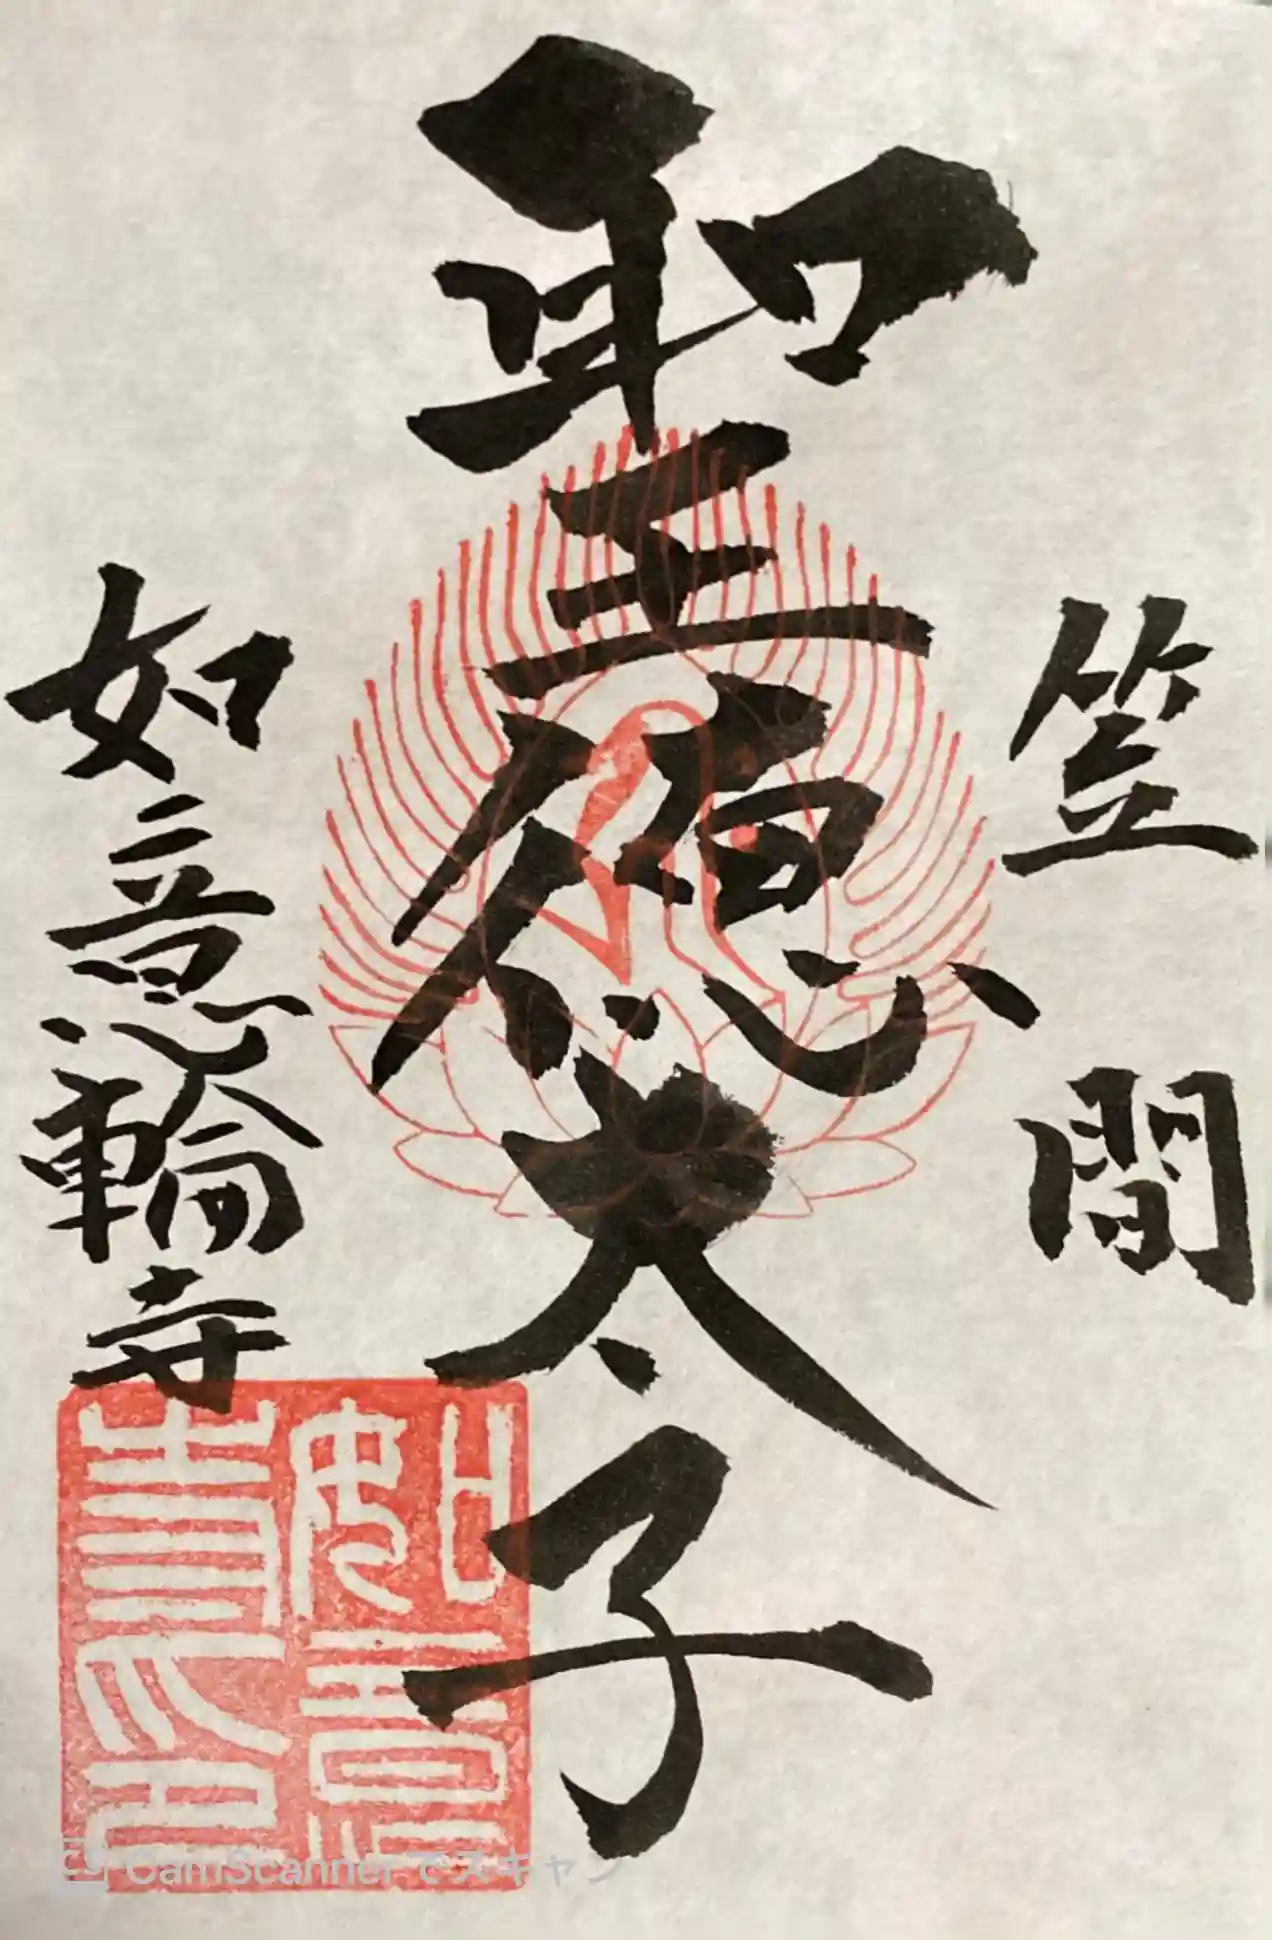 笠間
聖徳太子
如意輪寺
如意
寺印
CamScanner でスキャン